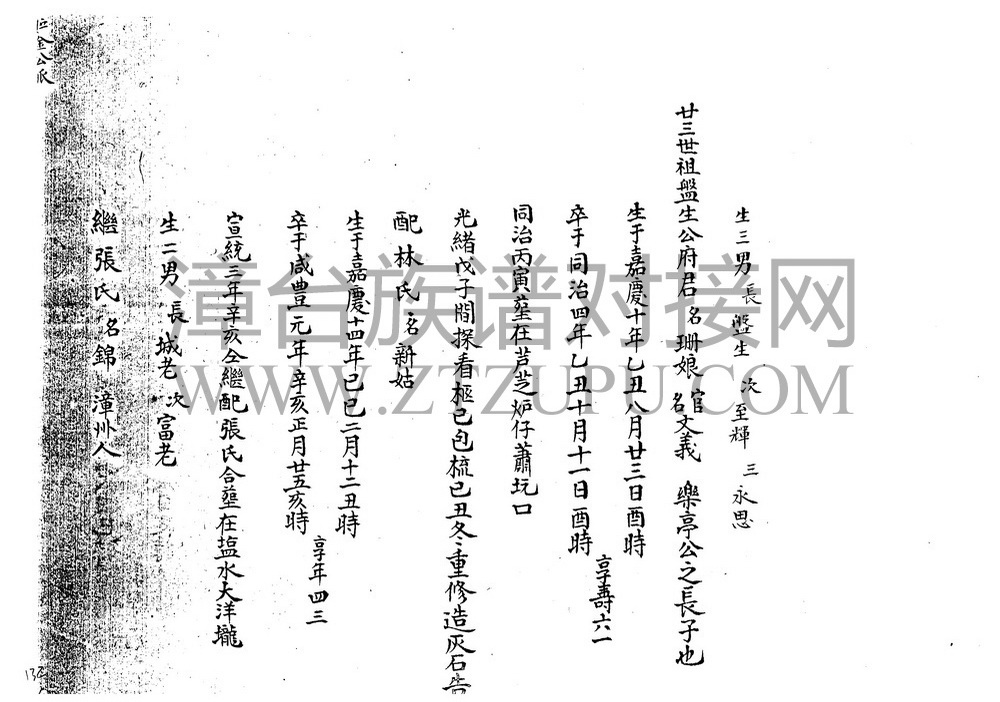 生三男 長盤生 次至輝 三永思
廿三世祖盤生公府君名珊娘官名文義 樂亭公之長子也
生于嘉慶十年乙丑八月廿三日酉時
卒于同治四年乙丑十月十一日酉時 享壽六一
同治丙寅葬在芦芝炉仔蕭坑口
光緒戊子間探看柩已包梳己丑冬重修造灰石
配林氏名新姑
生于嘉慶十四年已巳二月十二丑時
卒于咸豊元年辛亥正月廿五亥時 享年四三
宣統三年辛亥仝繼配張氏合葬在塩水大洋壠
生二男 長城老 次富老
繼張氏名錦 漳州人
金公派
漳台族谱对接网
WWW.ZTZUPU.COM